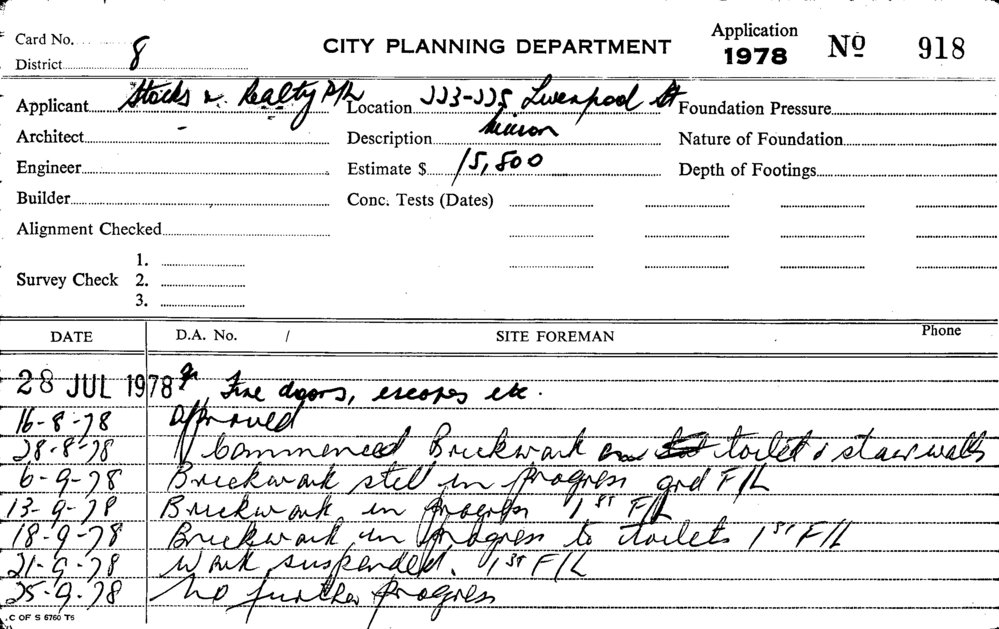 Card No. CITY PLANNING DEPARTMENT Application 1978 No 918
District 8
Applicant Stocks & Realty P/L Location 223-225 Liverpool St Foundation Pressure
Architect - Description Nature of Foundation
Engineer Estimate $ 15,800 Depth of Footings
Builder Conc. Tests (Dates)
Alignment Checked
Survey Check 1.
2.
3.
DATE D.A. No. / SITE FOREMAN Phone
28 JUL 1978 Fire doors, escapes etc.
16-8-78 Approved
28-8-78 Commenced Brickwork toilet & stair walls
6-9-78 Brickwork still in progress grd F/L
13-9-78 Brickwork in progress 1ST F/L
18-9-78 Brickwork in progress to toilets 1ST F/L
21-9-78 Work suspended. 1ST F/L
25-9-78 No further progress
C OF S 6760 T5